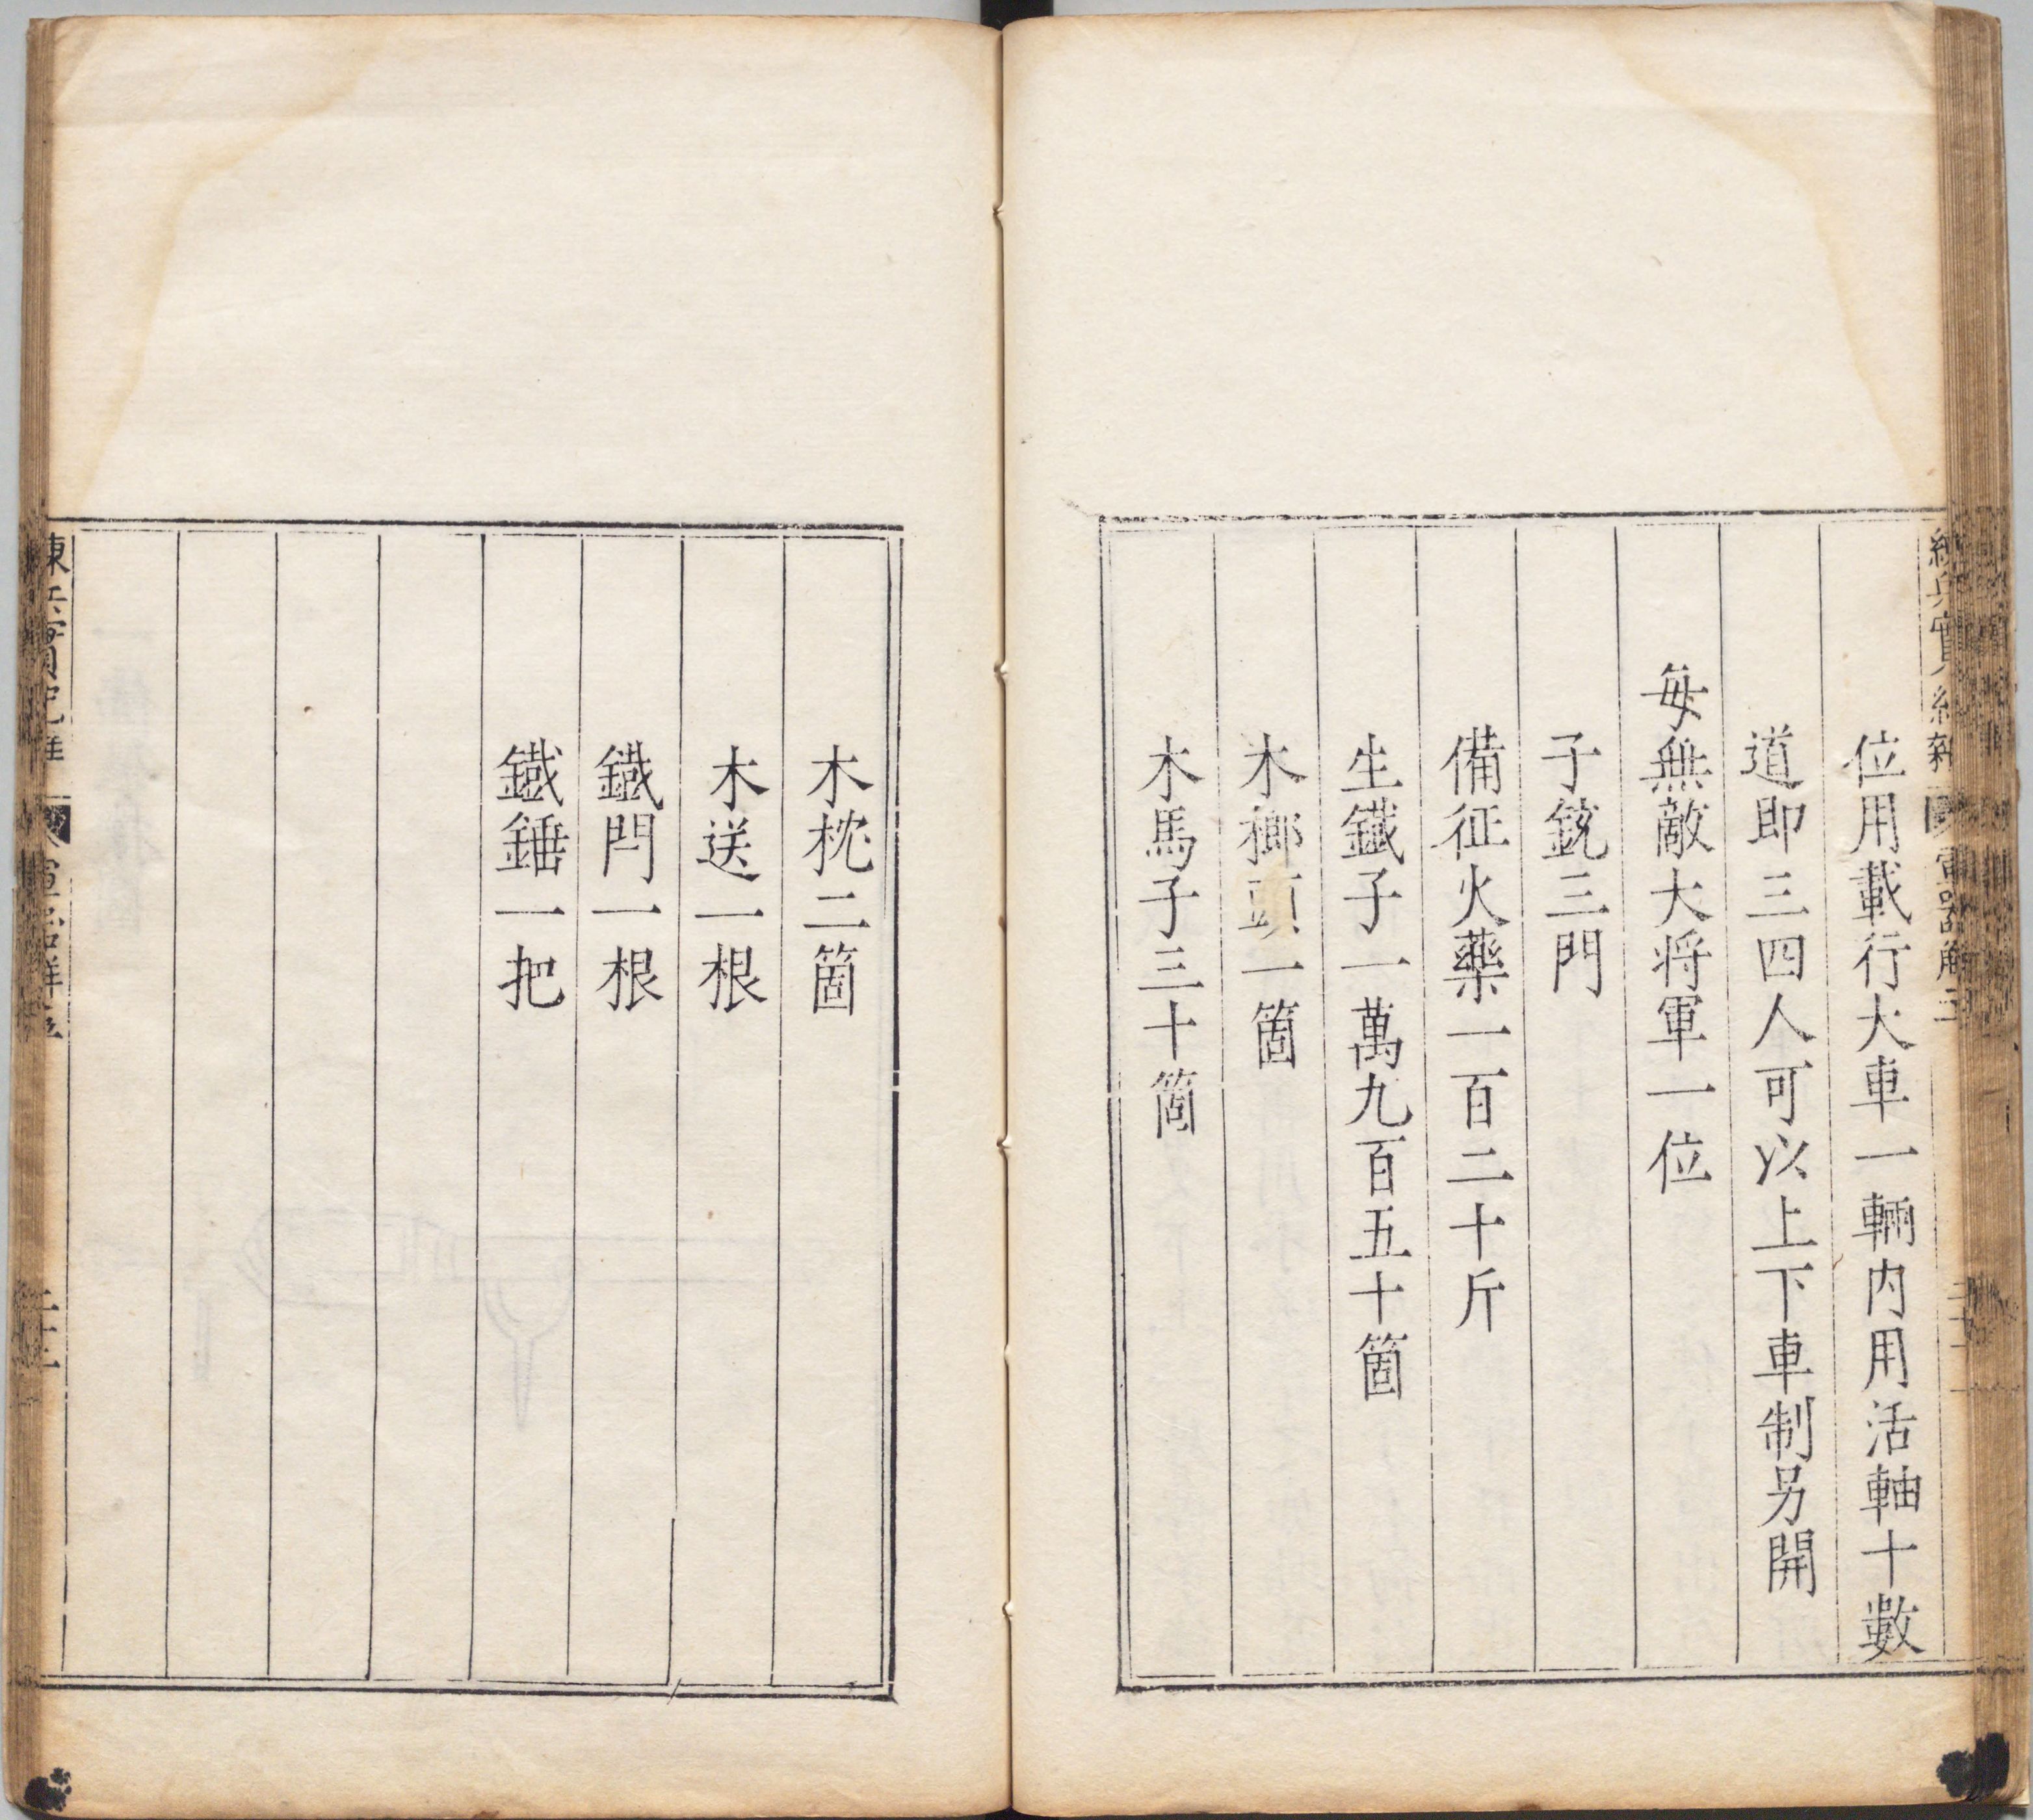 位用載行大車一輛内用活軸十數
道即三四人可以上下車制另開
每無敵大将軍一位
子銃三門
備征火藥一百二十斤
生鐵子一萬九百五十箇
木榔頭一箇
木馬子三十箇
木枕二箇
木送一根
鐡閂一根
鐡錘一把